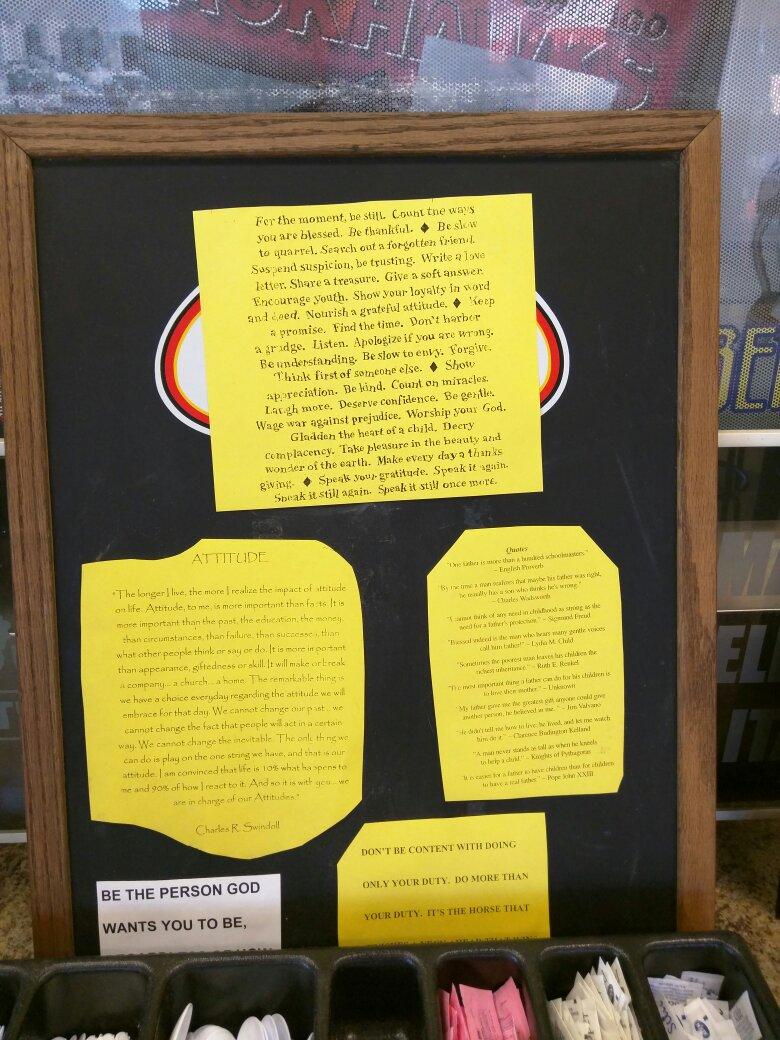 For the moment, be still. Count the ways
you are blessed. Be thankful. ♦ Be slow
to quarrel. Search out a forgotten friend.
Suspend suspicion, be trusting. Write a love
letter. Share a treasure. Give a soft answer.
Encourage youth. Show your loyalty in word
and deed. Nourish a grateful attitude. ♦ Keep
a promise. Find the time. Don't harbor
a grudge. Listen. Apologize if you are wrong.
Be understanding. Be slow to envy. Forgive.
Think first of someone else. ♦ Show
appreciation. Be kind. Count on miracles.
Laugh more. Deserve confidence. Be gentle.
Wage war against prejudice. Worship your God.
Gladden the heart of a child. Decry
complacency. Take pleasure in the beauty and
wonder of the earth. Make every day a thanks
giving. ♦ Speak your gratitude. Speak it again.
Speak it still again. Speak it still once more.
ATTITUDE
"The longer I live, the more I realize the impact of attitude
on life. Attitude, to me, is more important than facts. It is
more important than the past, the education, the money,
than circumstances, than failure, than successes, than
what other people think or say or do. It is more important
than appearance, giftedness or skill. It will make or break
a company... a church... a home. The remarkable thing is
we have a choice everyday regarding the attitude we will
embrace for that day. We cannot change our past... we
cannot change the fact that people will act in a certain
way. We cannot change the inevitable. The only thing we
can do is play on the one string we have, and that is our
attitude. I am convinced that life is 10% what happens to
me and 90% of how I react to it. And so it is with you... we
are in charge of our Attitudes."
Charles R. Swindoll
Quotes
"One father is more than a hundred schoolmasters."
– English Proverb
"By the time a man realizes that maybe his father was right,
he usually has a son who thinks he's wrong."
– Charles Wadsworth
"I cannot think of any need in childhood as strong as the
need for a father's protection." – Sigmund Freud
"Blessed indeed is the man who hears many gentle voices
call him father!" – Lydia M. Child
"Sometimes the poorest man leaves his children the
richest inheritance." – Ruth E. Renkel
"The most important thing a father can do for his children is
to love their mother." – Unknown
"My father gave me the greatest gift anyone could give
another person, he believed in me." – Jim Valvano
"He didn't tell me how to live; he lived, and let me watch
him do it." – Clarence Budington Kelland
"A man never stands as tall as when he kneels
to help a child." – Knights of Pythagoras
"It is easier for a father to have children than for children
to have a real father." – Pope John XXIII
DON'T BE CONTENT WITH DOING
ONLY YOUR DUTY. DO MORE THAN
YOUR DUTY. IT'S THE HORSE THAT
BE THE PERSON GOD
WANTS YOU TO BE,